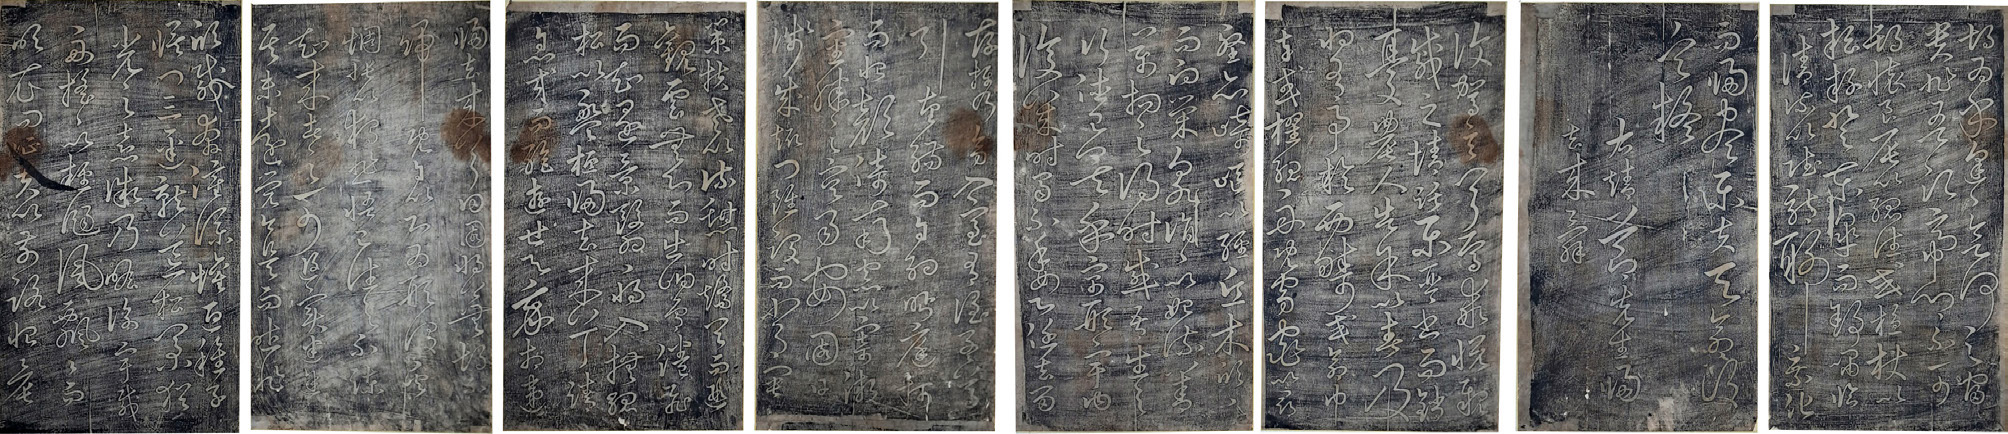 欣載奔僮僕歡迎稚子
候門三逕就荒松菊猶
光之熹微乃瞻衡宇載
舟搖搖以輕颺風飄飄而
吹衣問征夫以前路恨晨
歸去來兮田園將蕪胡不
歸既自以心為形役奚
惆悵而獨悲悟已往之不諫
知來者之可追實迷途
其未遠覺今是而昨非
策扶老以流憩時矯首而遐
觀雲無心而出岫鳥倦飛
而知還景翳翳以將入撫孤
松以盤桓歸去來兮請
息交而絕遊世與我而違
存攜幼入室有酒盈樽
引壺觴而自酌眄庭柯
而怡顏倚南窗以寄傲
審容膝之易安園日
涉以成趣門雖設而常關
壑亦崎嶇以經丘木欣欣
而向榮泉涓涓以始流善
萬物之得時感吾生之
行休已矣乎寓形宇內
復幾時曷不委心任去留
復駕言兮焉求悅親
戚之情話樂琴書而銷
憂農人告余以春及
將有事於西疇或命巾
車或棹孤舟既窈窕以尋
而歸盡樂夫天命復
奚疑
右晉靖節先生歸
去來辭
胡為乎遑遑兮欲何之富
貴非吾願帝鄉不可
期懷良辰以孤往或植杖以
耘耔登東皋而舒嘯臨
清流以賦詩聊乘化